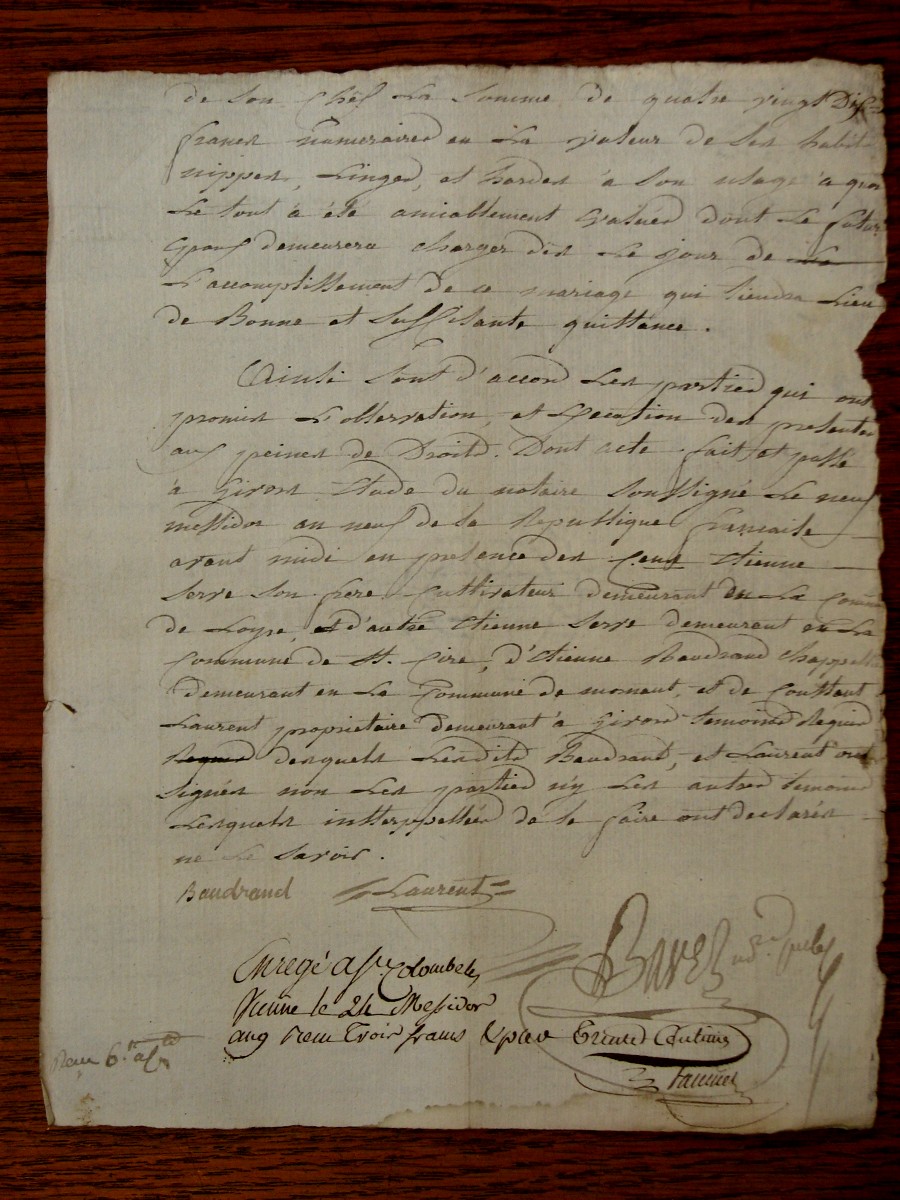 de son chef La somme de quatre vingt Dix
francs numeraires en La valeur de ses habits
nippes, Linges, et hardes à son usage à quoi
Le tout à été amiablement Evalués dont Le futur
Epoux demeurera charger dès Le jour de La
L'accomplissement de ce mariage qui tiendra Lieu
de Bonne et suffisante quittance.
Ainsi sont d'accord Les parties qui ont
promis L'observation, et Execution des presentes
aux peines de Droits. Dont acte fait et passé
à Giron Etude du notaire soussigné Le neuf
messidor an neuf de la Republique francaise
avant midi en presence des Etienne
Serre son frere Cultivateur demeurant en La Commune
de Loyse, et d'autre Etienne Serre demeurant en La
Commune de St. Cire, d'Etienne Baudrand
demeurant en La Commune de et de Couttant
Laurent proprietaire demeurant à Giron temoins Requis
Requis desquels Lesdits Baudrant, et Laurent ont
signés non Les parties n'y Les autres temoins
Lesquels intterppellés de le faire ont declarés
ne Le savoir.
Baudrand Laurent
Enregé à Colombe
Vienne le 24 Messidor
an 9 Reçu Trois francs Trente Centimes
Reçu 6